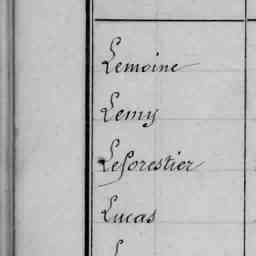 Lemoine
Lemy
Leforestier
Lucas